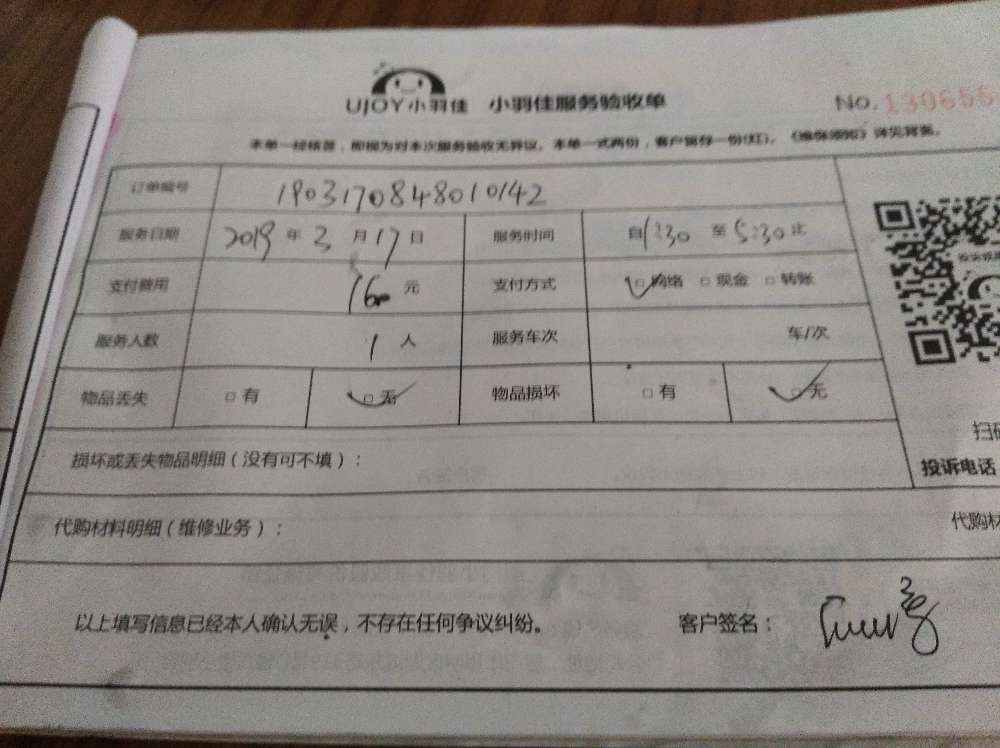 UJOY小羽佳 小羽佳服务验收单 No.130656
本单一经核签，即视为对本次服务验收无异议。本单一式两份，客户留存一份(红)。《维保须知》详见背面。
订单编号 19031708848010142
服务日期 2019年3月17日 服务时间 自1:30至5:30止
支付费用 160元 支付方式 □网络 □现金 □转账
服务人数 1人 服务车次 车/次
物品丢失 □有 □无 物品损坏 □有 □无
扫码
损坏或丢失物品明细（没有可不填）： 投诉电话
代购材料明细（维修业务）： 代购材
以上填写信息已经本人确认无误，不存在任何争议纠纷。 客户签名：